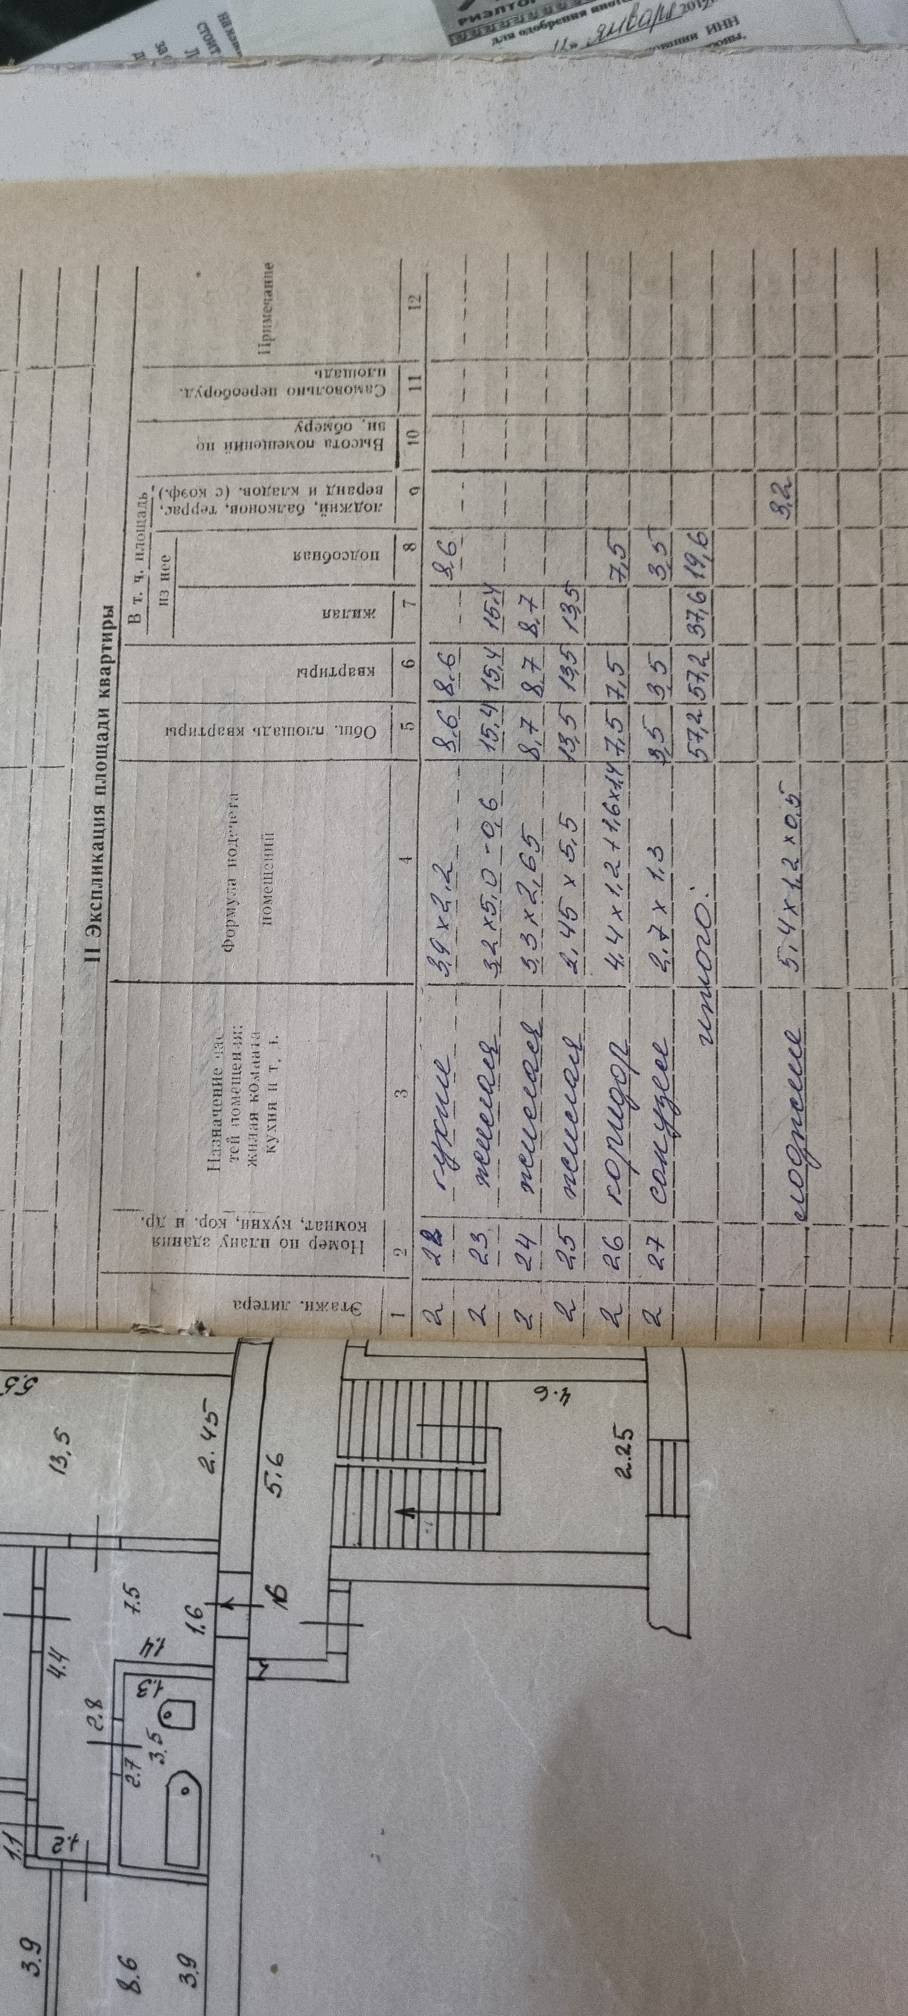 РИЭЛТО
для одобрения ипот
11" января 2012
ИНН
стоит
за
II Экспликация площади квартиры
Этажн. литера
Номер по плану здания комнат, кухни, кор. и др.
Назначение час
тей помещения:
жилая комната
кухня и т. п.
Формула подсчета
помещений
Общ. площадь квартиры
В т. ч. площадь
квартиры
из нее
жилая
подсобная
лоджий, балконов, террас, веранд и кладов. (с коэф.)
Высота помещений по вн. обмеру
Самовольно переоборуд. площадь
Примечание
1 2 3 4 5 6 7 8 9 10 11 12
2 22 кухня 3,9 x 2,2 8,6 8,6 8,6
2 23 жилая 3,2 x 5,0 - 0,6 15,4 15,4 15,4
2 24 жилая 3,3 x 2,65 8,7 8,7 8,7
2 25 жилая 2,45 x 5,5 13,5 13,5 13,5
2 26 коридор 4,4 x 1,2 + 1,6 x 1,4 7,5 7,5 7,5
2 27 санузел 2,7 x 1,3 3,5 3,5 3,5
итого: 57,2 57,2 37,6 19,6
лоджия 5,4 x 1,2 x 0,5 3,2
5.5
13,5
2.45
5.6
4.6
2.25
4.4
7.5
1.6
16
1.4
2.8
1.3
2.7
3.5
1.1
1.2
3.9
8.6
3.9